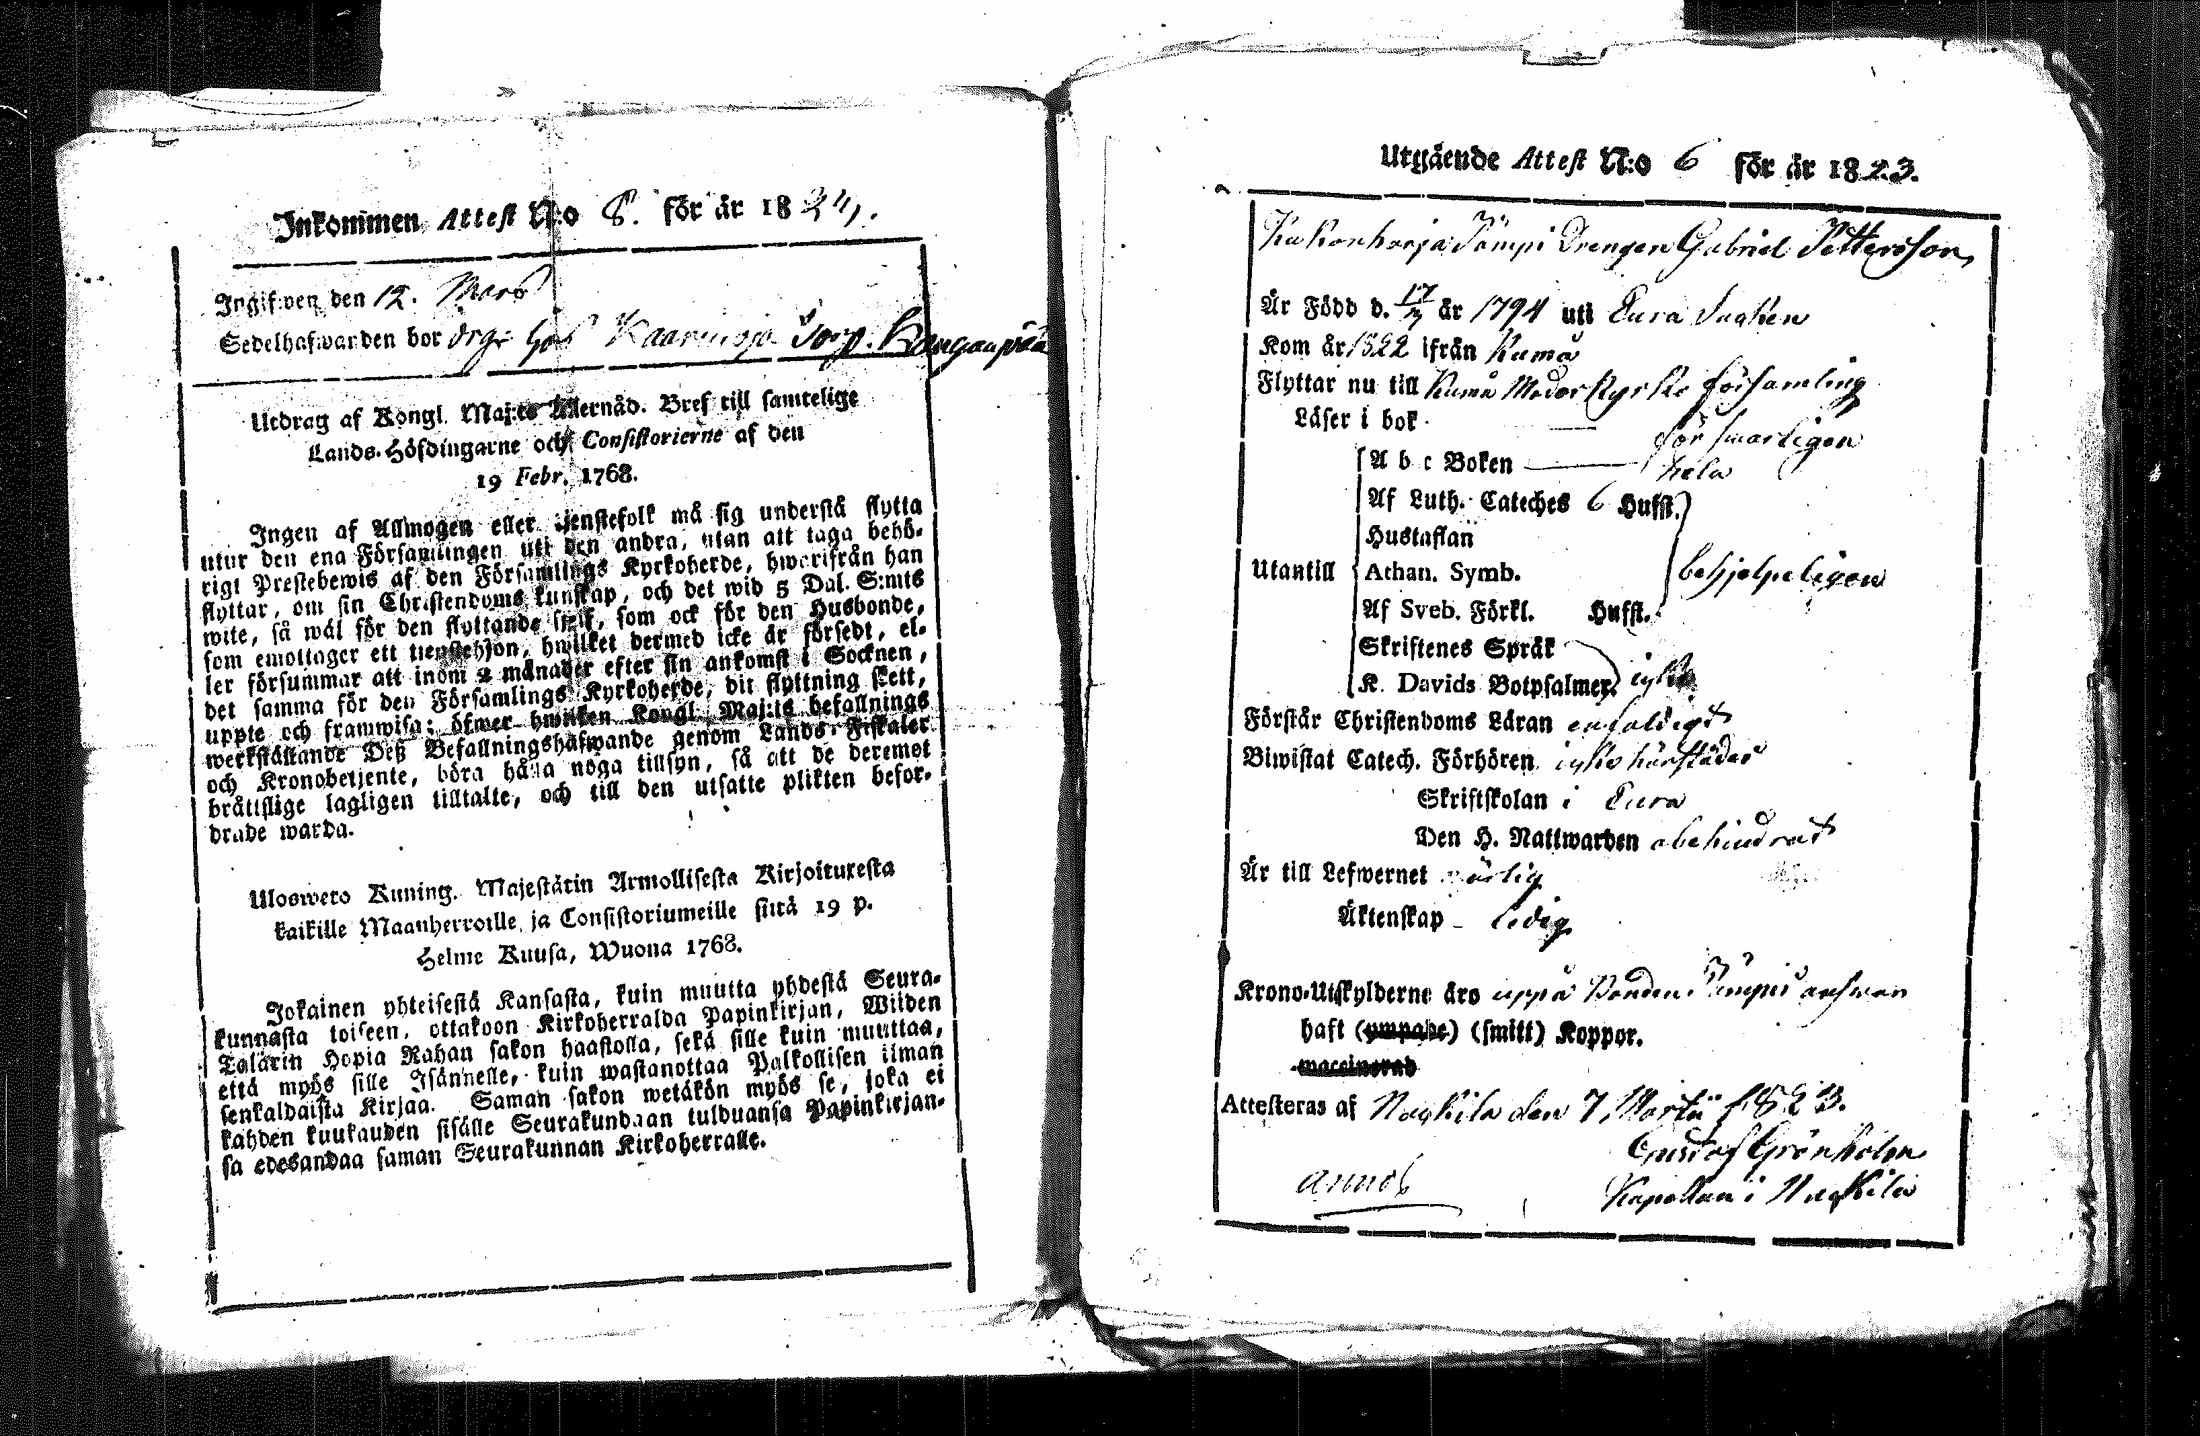 Inkommen Attest N:o 8. för år 1824.
Ingifwen den 12. Mars
Sedelhafwanden bor drg: hos Kaarnoja Torp. Kanganpää
Utdrag af Kongl. Maj:ts Allernåd. Bref till samtelige
Lands-Höfdingarne och Consistorierne af den
19 Febr. 1768.
Ingen af Allmogen eller tjenstefolk må sig understå flytta
utur den ena Församlingen uti den andra, utan att taga behö-
rigt Prestebewis af den Församlings Kyrkoherde, hwarifrån han
flyttar, om sin Christendoms kunskap, och det wid 5 Dal. S:mts
wite, så wäl för den flyttande sjelf, som ock för den Husbonde,
som emottager ett tjenstehjon, hwilket dermed icke är försedt, el-
ler försummar att inom 2 månader efter sin ankomst i Socknen,
det samma för den Församlings Kyrkoherde, dit flyttning skett,
uppte och framwisa; öfwer hwilken Kongl. Maj:ts befallnings
werkställande Deß Befallningshafwande genom Lands-Fiskaler
och Kronobetjente, böra hålla noga tillsyn, så att de deremot
bråttslige lagligen tilltalte, och till den utsatte plikten befor-
drade warda.
Uloswето Kuning. Majestätin Armollisesta Kirjoituxesta
kaikille Maanherroille ja Consistoriumeille siitä 19 p.
Helme Kuusa, Wuona 1768.
Jokainen yhteisestä Kansasta, kuin muutta yhdestä Seura-
kunnasta toiseen, ottakoon Kirkoherralda Papinkirjan, Wiiden
Talarin Hopia Rahan sakon haastolla, sekä sille kuin muuttaa,
että myös sille Isännelle, kuin wastanottaa Palkollisen ilman
senkaldaista Kirjaa. Saman sakon wetäkön myös se, joka ei
kahden kuukauden sisälle Seurakundaan tulduansa Papinkirjan-
sa edesandaa saman Seurakunnan Kirkoherralle.
Utgående Attest N:o 6 för år 1823.
Kukonharja Sämpi Drengen Gabriel Pettersson,
Är Född d. 17/3 år 1794 uti Eura Sochen
Kom år 1822 ifrån Kumå
Flyttar nu till Kumå Moderkyrko församling
Läser i bok försvarligen
A b c Boken hela
Af Luth. Cateches 6 Hufst.
Hustaflan
Utantill Athan. Symb. behjelpeligen
Af Sveb. Förkl. Hufst.
Skriftenes Språk
K. Davids Botpsalmer icke
Förstår Christendoms Läran enfaldigt
Biwistat Catech. Förhören icke härstädes
Skriftskolan i Eura
Den H. Nattwarden obehindrat
Är till Lefwernet ärlig
Äktenskap ledig
Krono-Utskylderne äro uppå Bonden Sämpis answar
haft (ympade) (smitt) Koppor.
vaccinerad
Attesteras af Nackila den 7 Martii 1823.
Gustaf Grönholm
Kapellan i Nackila
annot